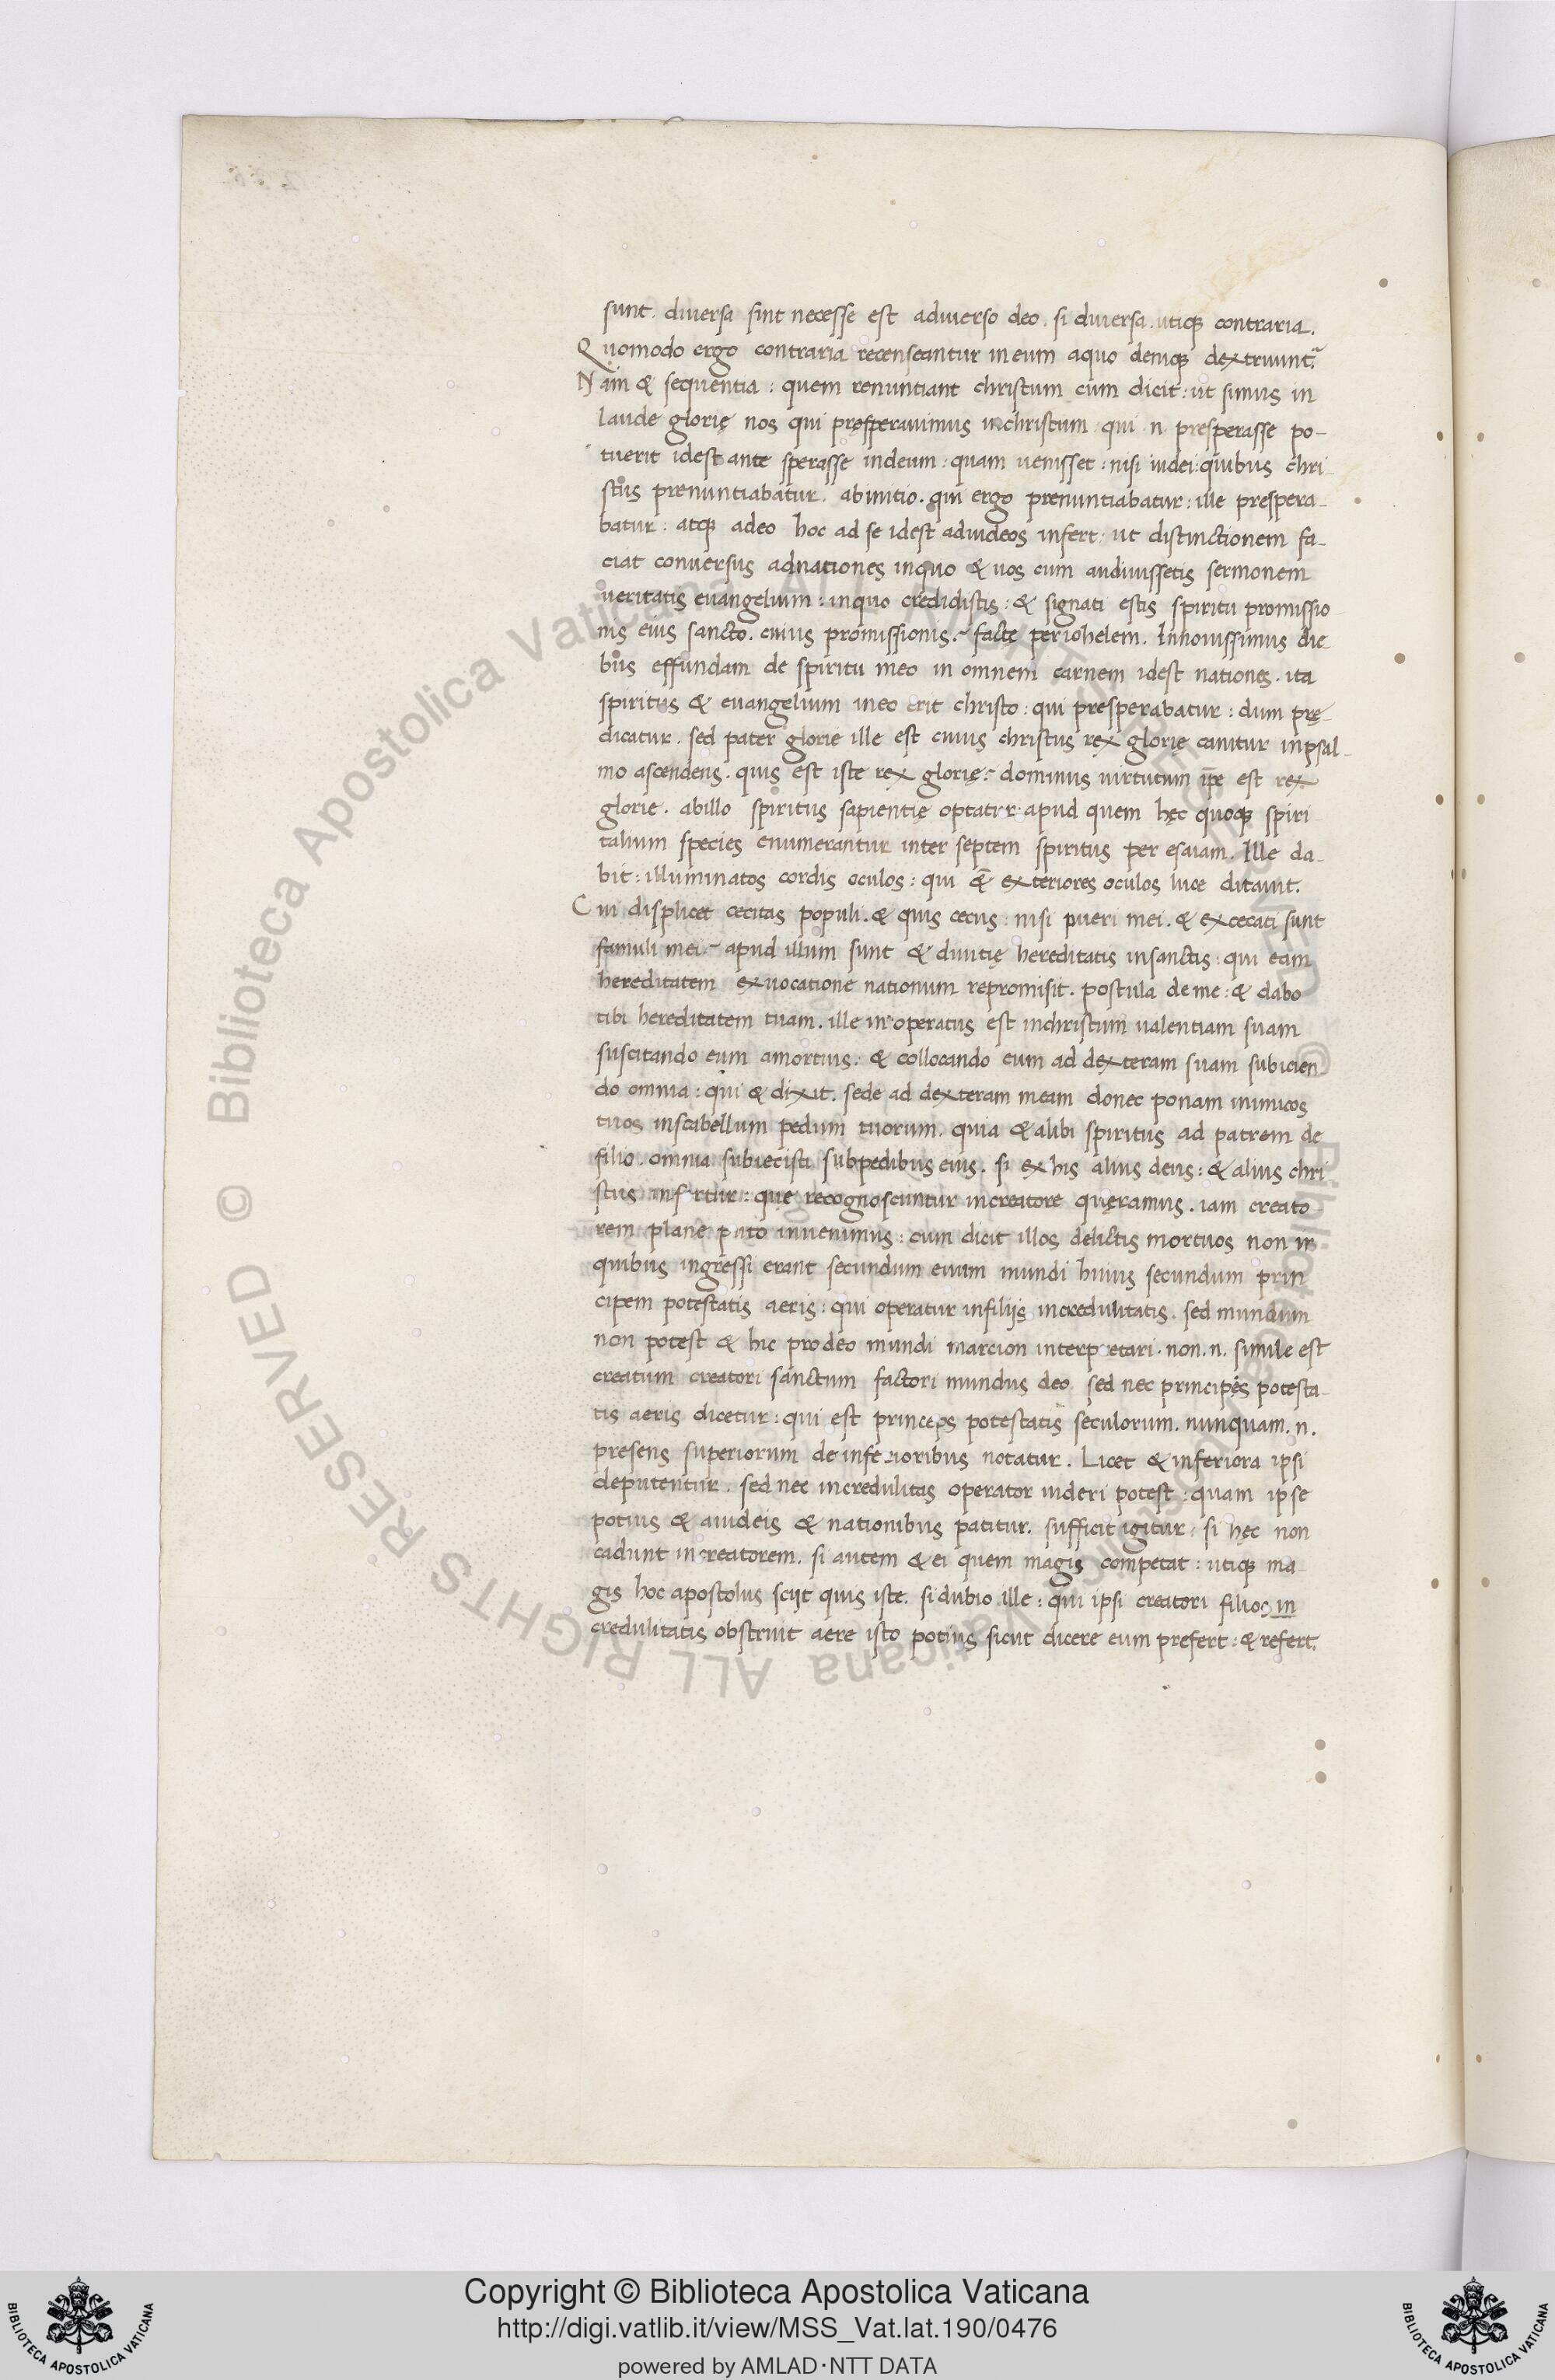 sunt. diuersa sint necesse est adiuerso deo. si diuersa. utiqȝ contraria.
Quomodo ergo contraria recenseantur in eum aquo deniqȝ dextruunt.ᷓ
Nam & sequentia: quem renuntiant christum cum dicit: ut simus in
laude glorię nos qui pręsperauimus inchristum qui n presperasse po-
tuerit idest ante sperasse indeum: quam uenisset: nisi iudei: quibus chri-
stus prenuntiabatur. abinitio. qui ergo prenuntiabatur: ille prespera-
batur: atqȝ adeo hoc ad se idest adiudeos infert: ut distinctionem fa-
ciat conuersus adnationes inquo & uos cum audiuissetis sermonem
ueritatis euangelium: inquo credidistis: & signati estis spiritu promissio
nis eius sancto. cuius promissionis.~ factę periohelem. Innouissimus die-
bus effundam de spiritu meo in omnem carnem idest nationes. ita
spiritus & euangelium ineo erit christo: qui presperabatur: dum prę-
dicatur. sed pater glorie ille est cuius christus rex glorię canitur inpsal-
mo ascendens. quis est iste rex glorię:~ dominus uirtutum ip̄e est rex
glorie. abillo spiritus sapientię optatur: apud quem hęc quoqȝ spiri-
talium species enumerantur inter septem spiritus per esaiam. Ille da-
bit: illuminatos cordis oculos: qui &̄ exteriores oculos luce ditauit.
Cui displicet cecitas populi. & quis cecus: nisi pueri mei. & excecati sunt
famuli mei:~ apud illum sunt & diuitię hereditatis insanctis: qui eam
hereditatem exuocatione nationum repromisit. postula de me: & dabo
tibi hereditatem tuam. ille inoperatus est inchristum ualentiam suam
suscitando eum amortuis: & collocando eum ad dexteram suam subicien
do omnia: qui & dixit. sede ad dexteram meam donec ponam inimicos
tuos inscabellum pedum tuorum. quia & alibi spiritus ad patrem de
filio. omnia subiecisti subpedibus eius. si ex his alius deus: & alius chri
stus infertur: quę recognoscuntur increatore quęramus. iam creato-
rem plane puto inuenimus: cum dicit illos delictis mortuos non in
quibus ingressi erant secundum euum mundi huius secundum prin
cipem potestatis aeris: qui operatur infiliis incredulitatis. sed mundum
non potest & hic prodeo mundi marcion interpretari. non. n. simile est
creatum creatori sanctum factori mundus deo. sed nec principęs potesta-
tis aeris dicetur: qui est princeps potestatis seculorum. nunquam. n.
presens superiorum de inferioribus notatur. Licet & inferiora ipsi
deputentur. sed nec incredulitas operator uideri potest: quam ipse
potius & aiudeis & nationibus patitur. sufficit igitur: si hęc non
cadunt increatorem. si autem & ei quem magis competat: utiqȝ ma-
gis hoc apostolus scijt quis iste. si dubio ille: qui ipsi creatori filios in
credulitatis obstruit aere isto potius sicut dicere eum prefert: & refert.
© Biblioteca Apostolica Vaticana ALL RIGHTS RESERVED © Biblioteca Apostolica Vaticana ALL RIGHTS RESERVED
Copyright © Biblioteca Apostolica Vaticana
http://digi.vatlib.it/view/MSS_Vat.lat.190/0476
powered by AMLAD·NTT DATA
BIBLIOTECA APOSTOLICA VATICANA
BIBLIOTECA APOSTOLICA VATICANA